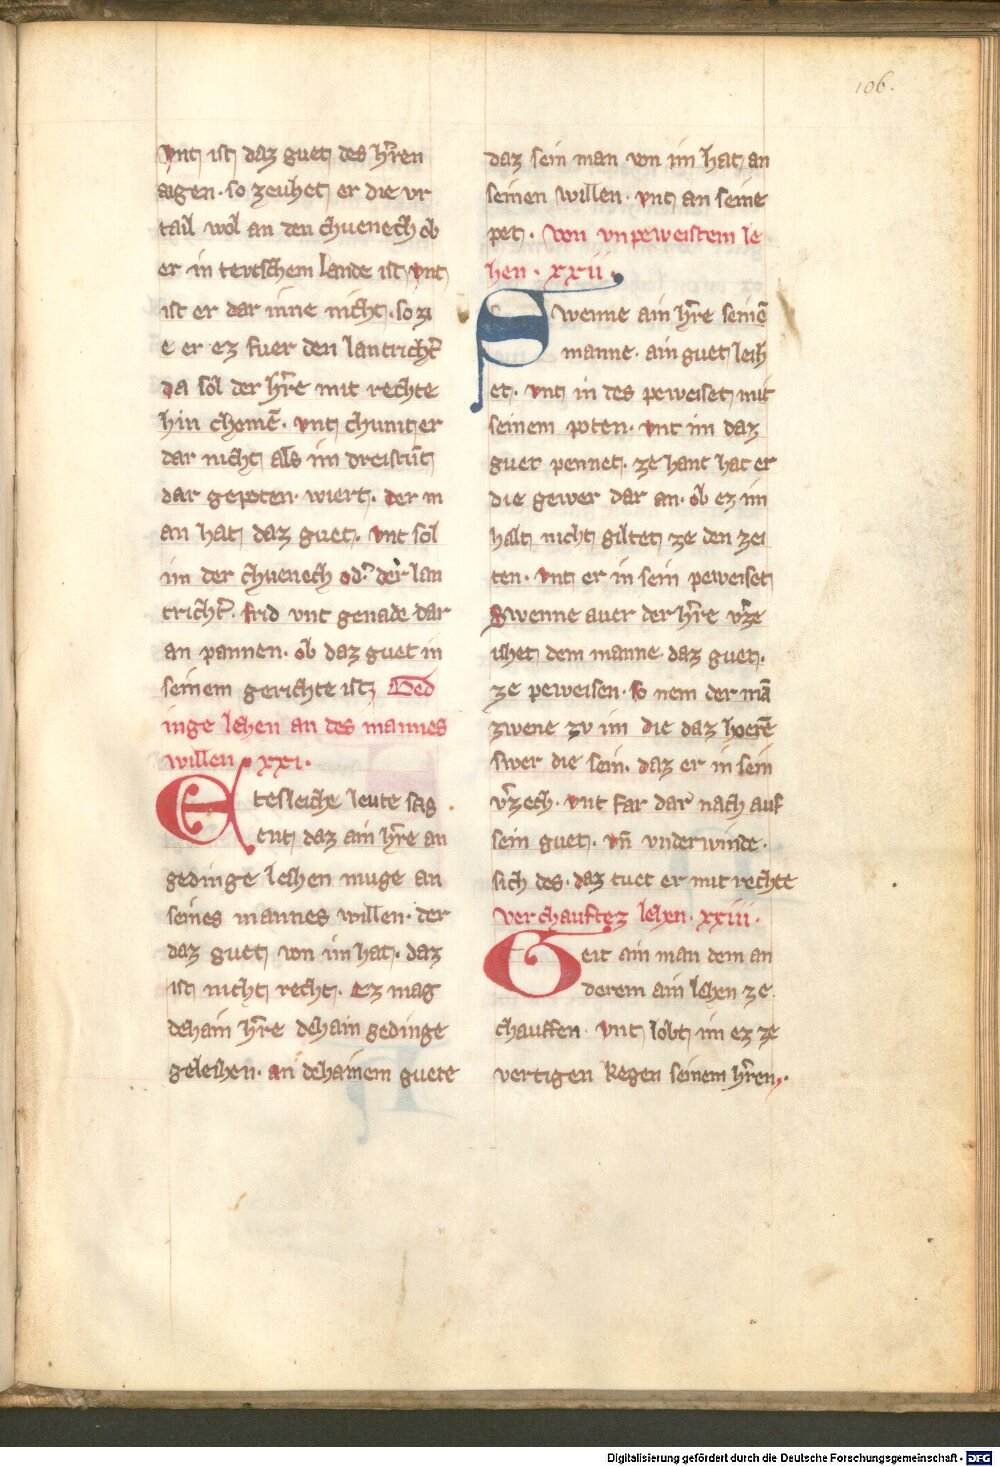 106.
vnt ist daz guet des hr̄ren
aigen. so zeuhet er die vr
tail wol an den chuenech ob
er in tevtschem lande ist vnt
ist er dar inne nicht. so zi
e er ez fuer den lantricht̄
da sol der hr̄re mit rechte
hin chomē. vnt chumt er
dar nicht als im dreistūt
dar gepoten wiert. der m
an hat daz guet. vnt sol
im der chuenech od̄ der lan
tricht̄. frid vnt genade dar
an pannen. ob daz guet in
seinem gerichte ist. Ged
inge lehen an des mannes
willen. xxi.
Etesleiche leute sag
ent daz ain hr̄re an
gedinge leihen muge an
seines mannes willen. der
daz guet von im hat. daz
ist nicht recht. Ez mag
dehain hr̄re dehain gedinge
geleihen. an dehainem guete
daz sein man von im hat an
seinen willen. vnt an seine
pet. Von vnpeweistem le
hen. xxii.
Swenne ain hr̄re seinē
manne. ain guet leih
et. vnt in des peweiset mit
seinem poten. vnt im daz
guet pennet. ze hant hat er
die gewer dar an. ob ez im
halt nicht giltet ze den zei
ten. vnt er in sein peweiset
Swenne auer der hr̄re v̄ze
ihet dem manne. daz guet.
ze peweisen. so nem der mā
zwene zv im die daz hoerē
swer die sein. daz er in sein
v̄zech. vnt far dar nach auf
sein guet. vn̄ vnderwinde.
sich des. daz tuet er mit rechte
verchauftez lehen. xxiii.
Geit ain man dem an
derem ain lehen ze
chauffen. vnt lobt im ez ze
vertigen kegen seinem hr̄ren.
Digitalisierung gefördert durch die Deutsche Forschungsgemeinschaft - DFG